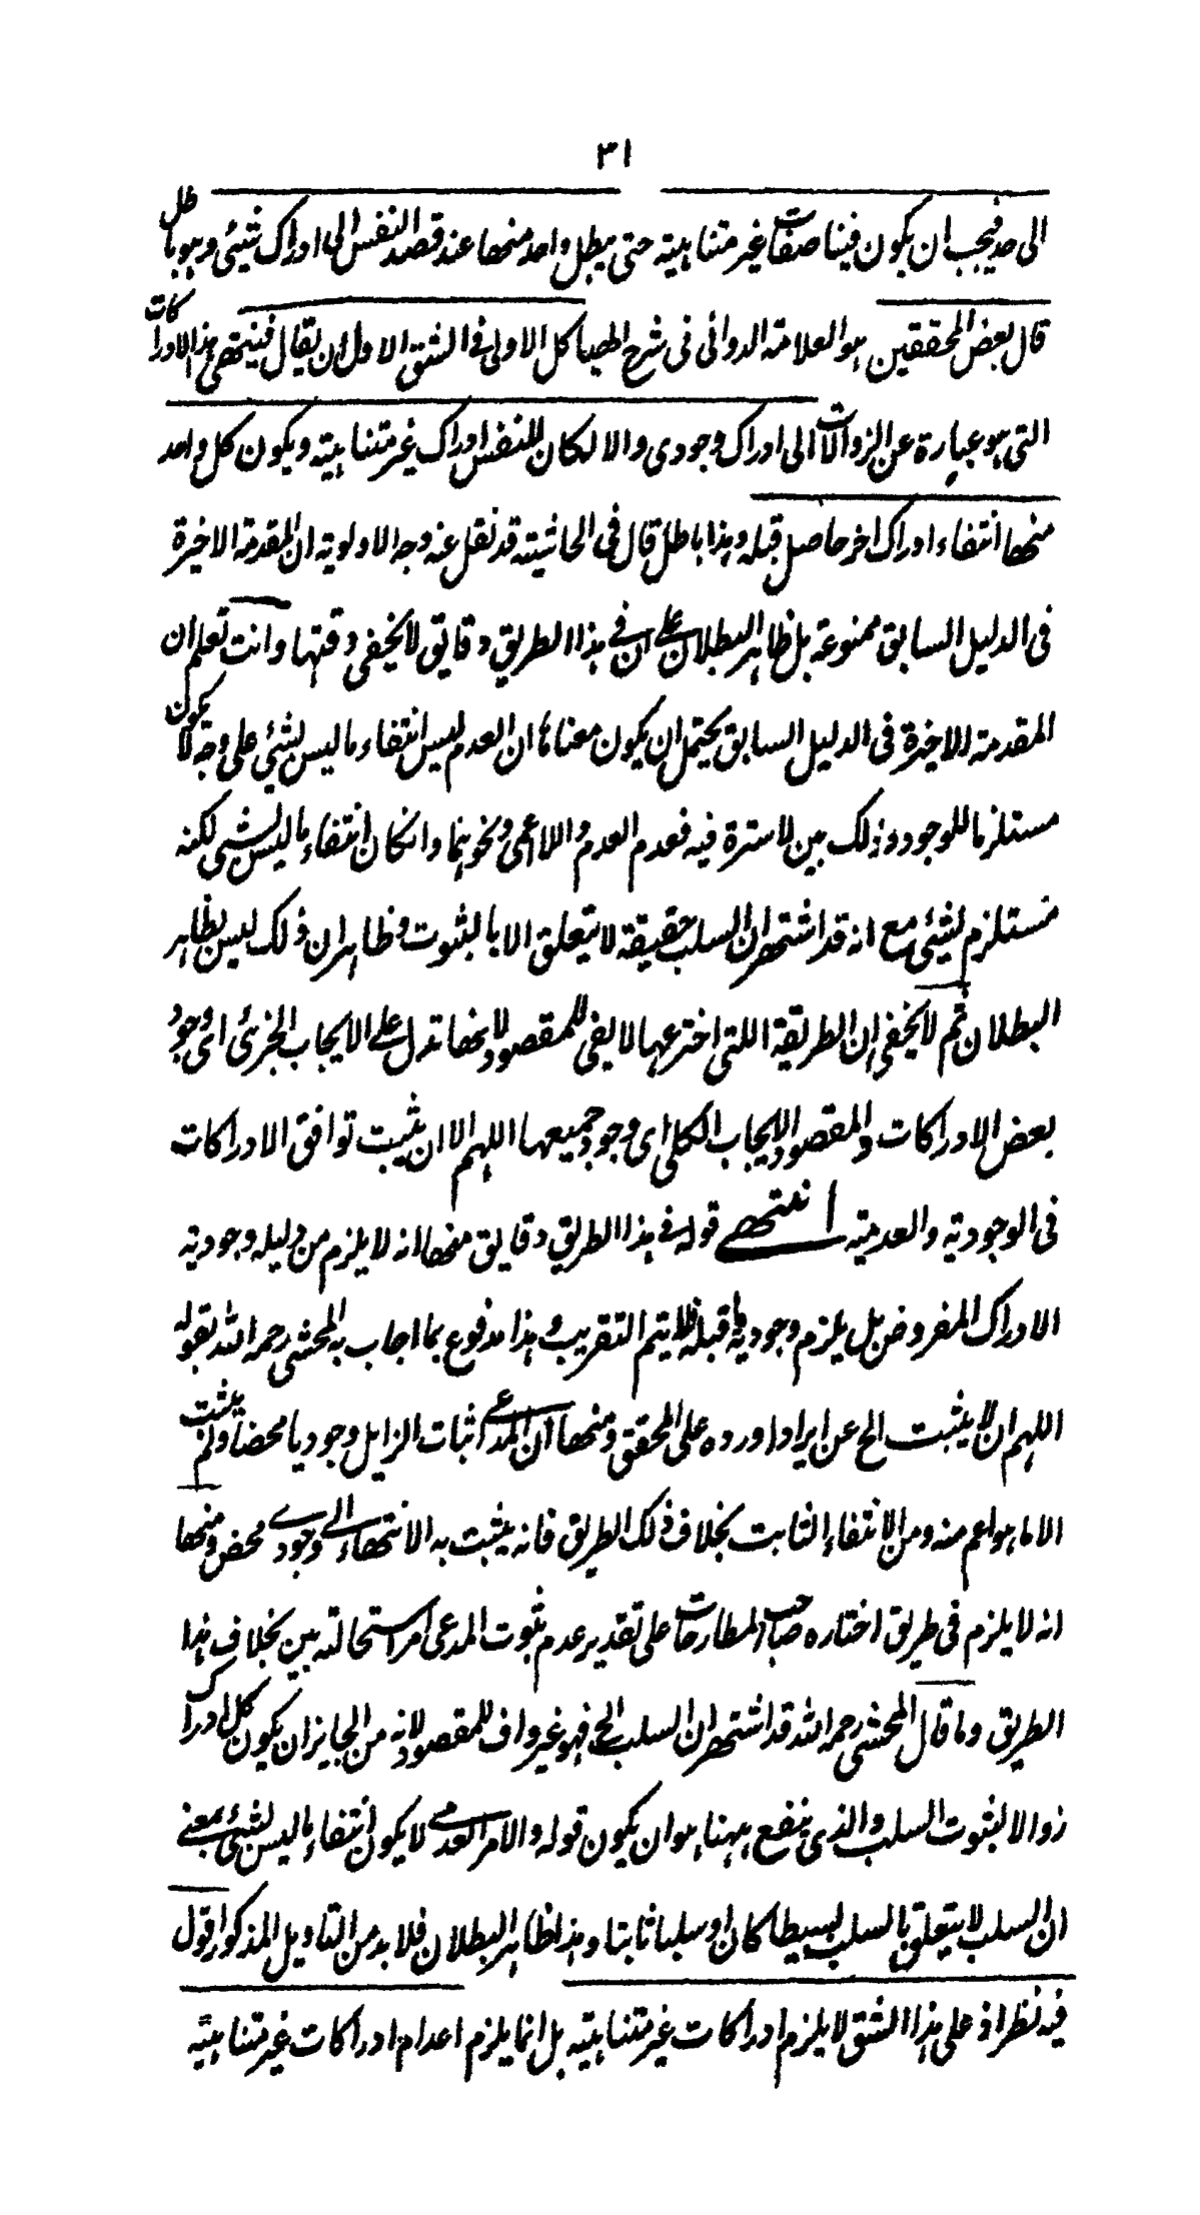 ٣١
الى حد فيجب ان يكون فينا صفات غير متناهية حتى يبطل واحد منها عند قصد النفس الى ادراك شيئ وهو باطل
قال بعض المحققين هو العلامة الدوانى فى شرح الهياكل الاولى فى الشق الاول ان يقال فينتهى هذا الادراكات
التى هو عبارة عن الزوالات الى ادراك وجودى والا لكان للنفس ادراك غير متناهية ويكون كل واحد
منها انتفاء ادراك اخر حاصل قبله وهذا باطل قال فى الحاشية قد نقل عنه وجه الاولوية ان المقدمة الاخيرة
فى الدليل السابق ممنوعة بل ظاهر البطلان على ان فى هذا الطريق دقايق لا يخفى دقتها وانت تعلم ان
المقدمة الاخيرة فى الدليل السابق يحتمل ان يكون معناها ان العدم ليس انتفاء ما ليس بشيئ على وجه لا يكون
مستلزما للوجود وذلك بين لا سترة فيه فعدم العدم واللا اعمى ونحوهما وانكان انتفاء ما ليس بشيئ لكنه
مستلزم لشيئ مع انه قد اشتهر ان السلب حقيقة لا يتعلق الا بالثبوت وظاهر ان ذلك ليس بظاهر
البطلان ثم لا يخفى ان الطريقة اللتى اخترعها لا يفى للمقصود لانها تدل على الايجاب الجزئى اى وجود
بعض الادراكات والمقصود الايجاب الكلى اى وجود جميعها اللهم الا ان يثبت توافق الادراكات
فى الوجودية والعدمية انتهى قوله فى هذا الطريق دقايق منها انه لا يلزم من دليله وجودية
الادراك المفروض بل يلزم وجودية ما قبله فلا يتم التقريب وهذا مدفوع بما اجاب به المحشى رحمه الله بقوله
اللهم ان لا يثبت الخ عن ايراد اورده على المحقق ومنها ان المدعى اثبات الزايل وجوديا محضا ولم يثبت
الا ما هو اعم منه ومن الانتفاء الثابت بخلاف ذلك الطريق فانه يثبت به الانتهاء الى وجودى محض ومنها
انه لا يلزم فى طريق اختاره صاحب المطارحات على تقدير عدم ثبوت المدعى امر استحالته بين بخلاف هذا
الطريق وما قال المحشى رحمه الله قد اشتهر ان السلب الخ فهو غير واف للمقصود لانه من الجايز ان يكون كل ادراك
زوالا لثبوت السلب والذى ينفع ههنا هو ان يكون قوله والامر العدمى لا يكون انتفاء ما ليس بشيئ بمعنى
ان السلب لا يتعلق بالسلب بسيطا كان او سلبا ثابتا وهذا ظاهر البطلان فلا بد من التاويل المذكور اقول
فيه نظر اذ على هذا الشق لا يلزم ادراكات غير متناهية بل انما يلزم اعدام ادراكات غير متناهية